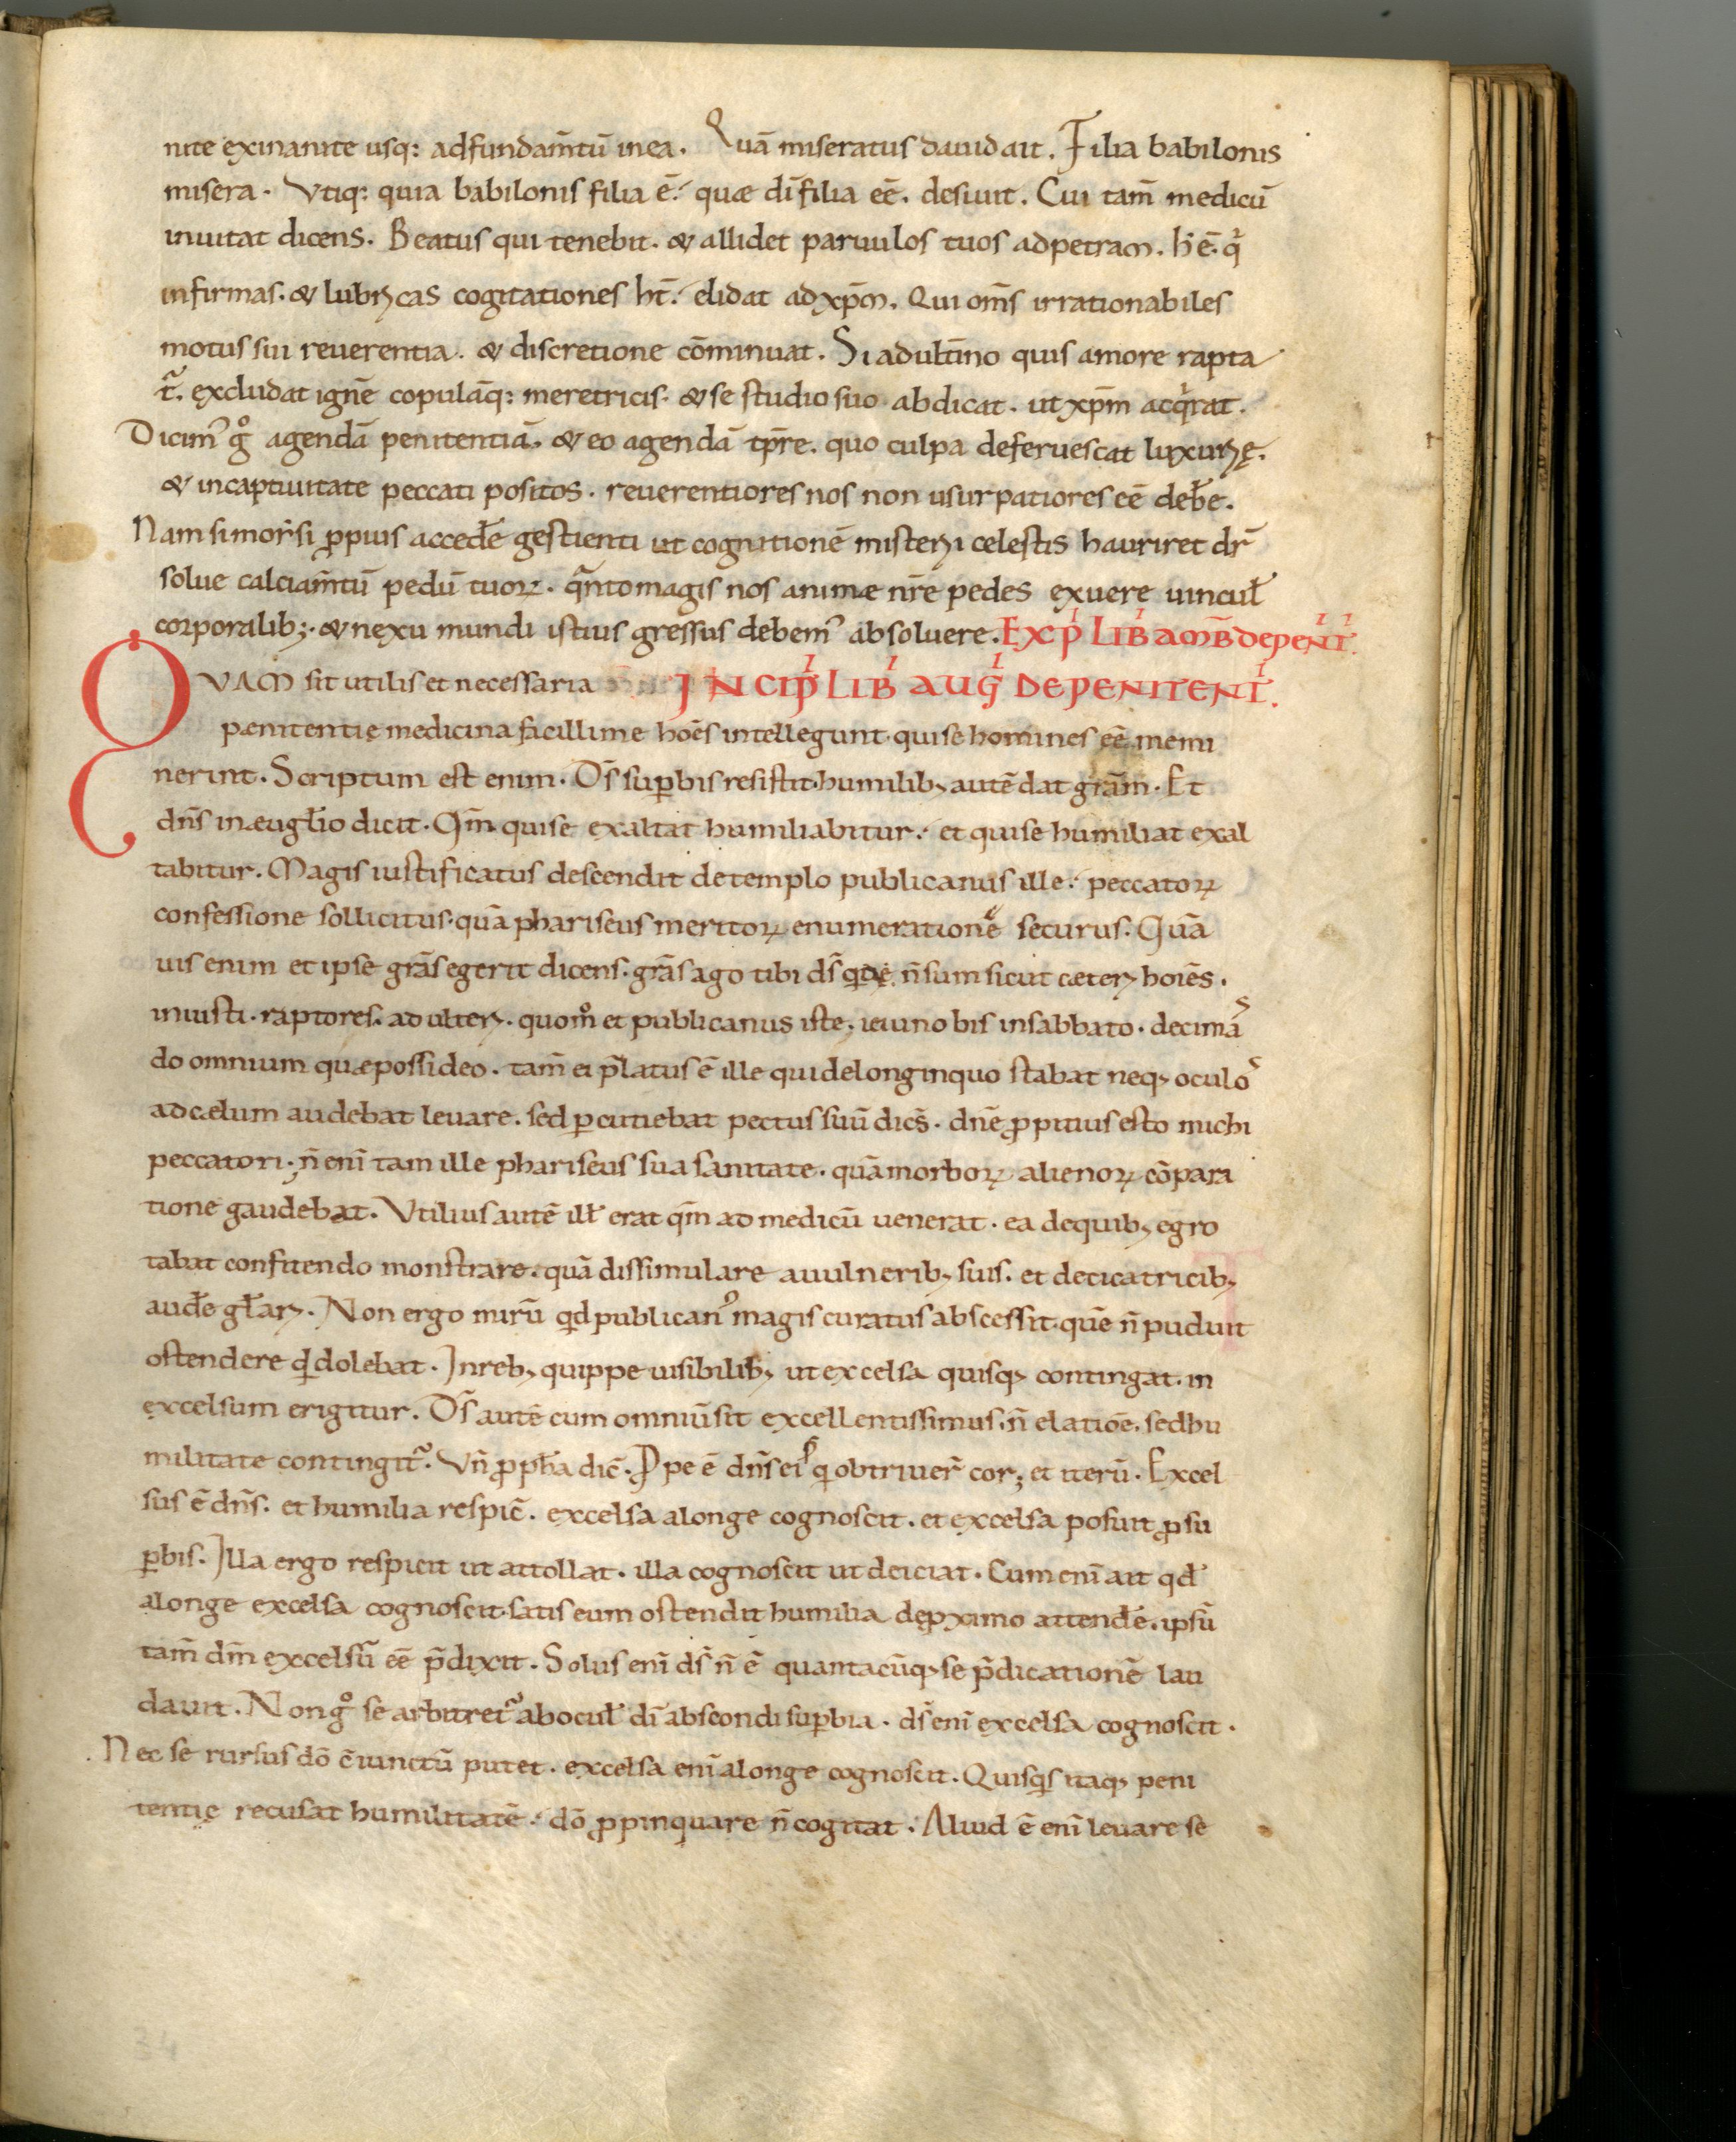 nite exinanite usq: adfundam̄tū inea. Quā miseratus dauid ait. Filia babilonis
misera. Vtiq: quia babilonis filia ē. quæ dī filia eē. desiuit. Cui tam̄ medicū
inuitat dicens. Beatus qui tenebit. & allidet paruulos tuos adpetram. h̄ ē. q̇
infirmas. & lubricas cogitationes ht̄. elidat ad xp̄m. Qui om̄s irrationabiles
motus sui reuerentia. & discretione cōminuat. Si adult̄ino quis amore rapta
t̄. excludat ignē copulāq: meretricis. & se studio suo abdicat. ut xp̄m acq̇rat.
Dicim᾿ gͦ agendā penitentiā. & eo agendā tp̄re. quo culpa deferuescat luxurię.
& incaptiuitate peccati positos. reuerentiores nos non usurpatiores eē deb̄e.
Nam si morsi ꝓpius acced̄e gestienti ut cognitionē misterii celestis hauriret dr̄
solue calciam̄tū pedū tuoꝝ. q̄nto magis nos animæ nr̄e pedes exuere uincul̄
corporalib;. & nexu mundi istius gressus debem᾿ absoluere. EXPͥ LIBͥ AMB̄ DEPENͥTͥ.
QVAM sit utilis et necessaria INCIPͥ LIBͥ AUGͥ DEPENITENTͥ.
pænitentię medicina facillime hoēs intellegunt. qui se homines eē memi
nerint. Scriptum est enim. Ds̄ suꝑbis resistit. humilib; autē dat grām. Et
dn̄s inæugl̄io dicit. Qm̄ qui se exaltat humiliabitur. et qui se humiliat exal
tabitur. Magis iustificatus descendit detemplo publicanus ille. peccatoꝝ
confessione sollicitus. quā phariseus meritoꝝ enumerationē securus. Quā
uis enim et ipse grās egerit dicens. grās ago tibi ds̄ n̄ sum sicut cæteri hoiēs.
iniusti. raptores. adulteri. quomͦ et publicanus iste. ieiuno bis insabbato. decimaˢ
do omnium quæpossideo. tam̄ ei p̄latus ē ille qui delonginquo stabat neq; oculoˢ
adcælum audebat leuare. sed ꝑcutiebat pectus suū dicēs. dn̄e ꝓpitius esto michi
peccatori. n̄ enī tam ille phariseus sua sanitate. quā morboꝝ alienoꝝ cōpara
tione gaudebat. Vtilius autē ill̄ erat qm̄ ad medicū uenerat. ea dequib; egro
tabat confitendo monstrare. quā dissimulare auulnerib; suis. et decicatricib;
aud̄e gl̄ari. Non ergo mirū qd̄ publican᾿ magis curatus abscessit. quē n̄ puduit
ostendere qd̄ dolebat. Inreb; quippe uisibilib; ut excelsa quisq; contingat. in
excelsum erigitur. Ds̄ autē cum omniū sit excellentissimus. n̄ elatioē. sed hu
militate contingit᷑. Vn̄ ꝓph̄a dic̄. Ppe ē dn̄s ei q̇ obtriuer̄ cor; et iterū. Excel
sus ē dn̄s. et humilia respic̄. excelsa alonge cognoscit. et excelsa posuit ꝓ su
ꝑbis. Illa ergo respicit ut attollat. illa cognoscit ut deiciat. Cum enī ait qd̄
alonge excelsa cognoscit. satis eum ostendit humilia deꝓximo attend̄e. ipsū
tam̄ dm̄ excelsū eē p̄dixit. Solus enī ds̄ n̄ ē quantacūq; se p̄dicationē lau
dauit. Non gͦ se arbitret᷑ abocul̄ dī abscondi suꝑbia. ds̄ enī excelsa cognoscit.
Nec se rursus dō c̄iunctū putet. excelsa enī alonge cognoscit. Quisq̇s itaq; peni
tentię recusat humilitatē. dō ꝓpinquare n̄ cogitat. Aliud ē enī leuare se
34